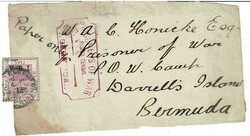 Paper only
W A C. Honicke Esq
Prisoner of War
P.O.W. Camp
Darrell's Island
Bermuda
OF WAR